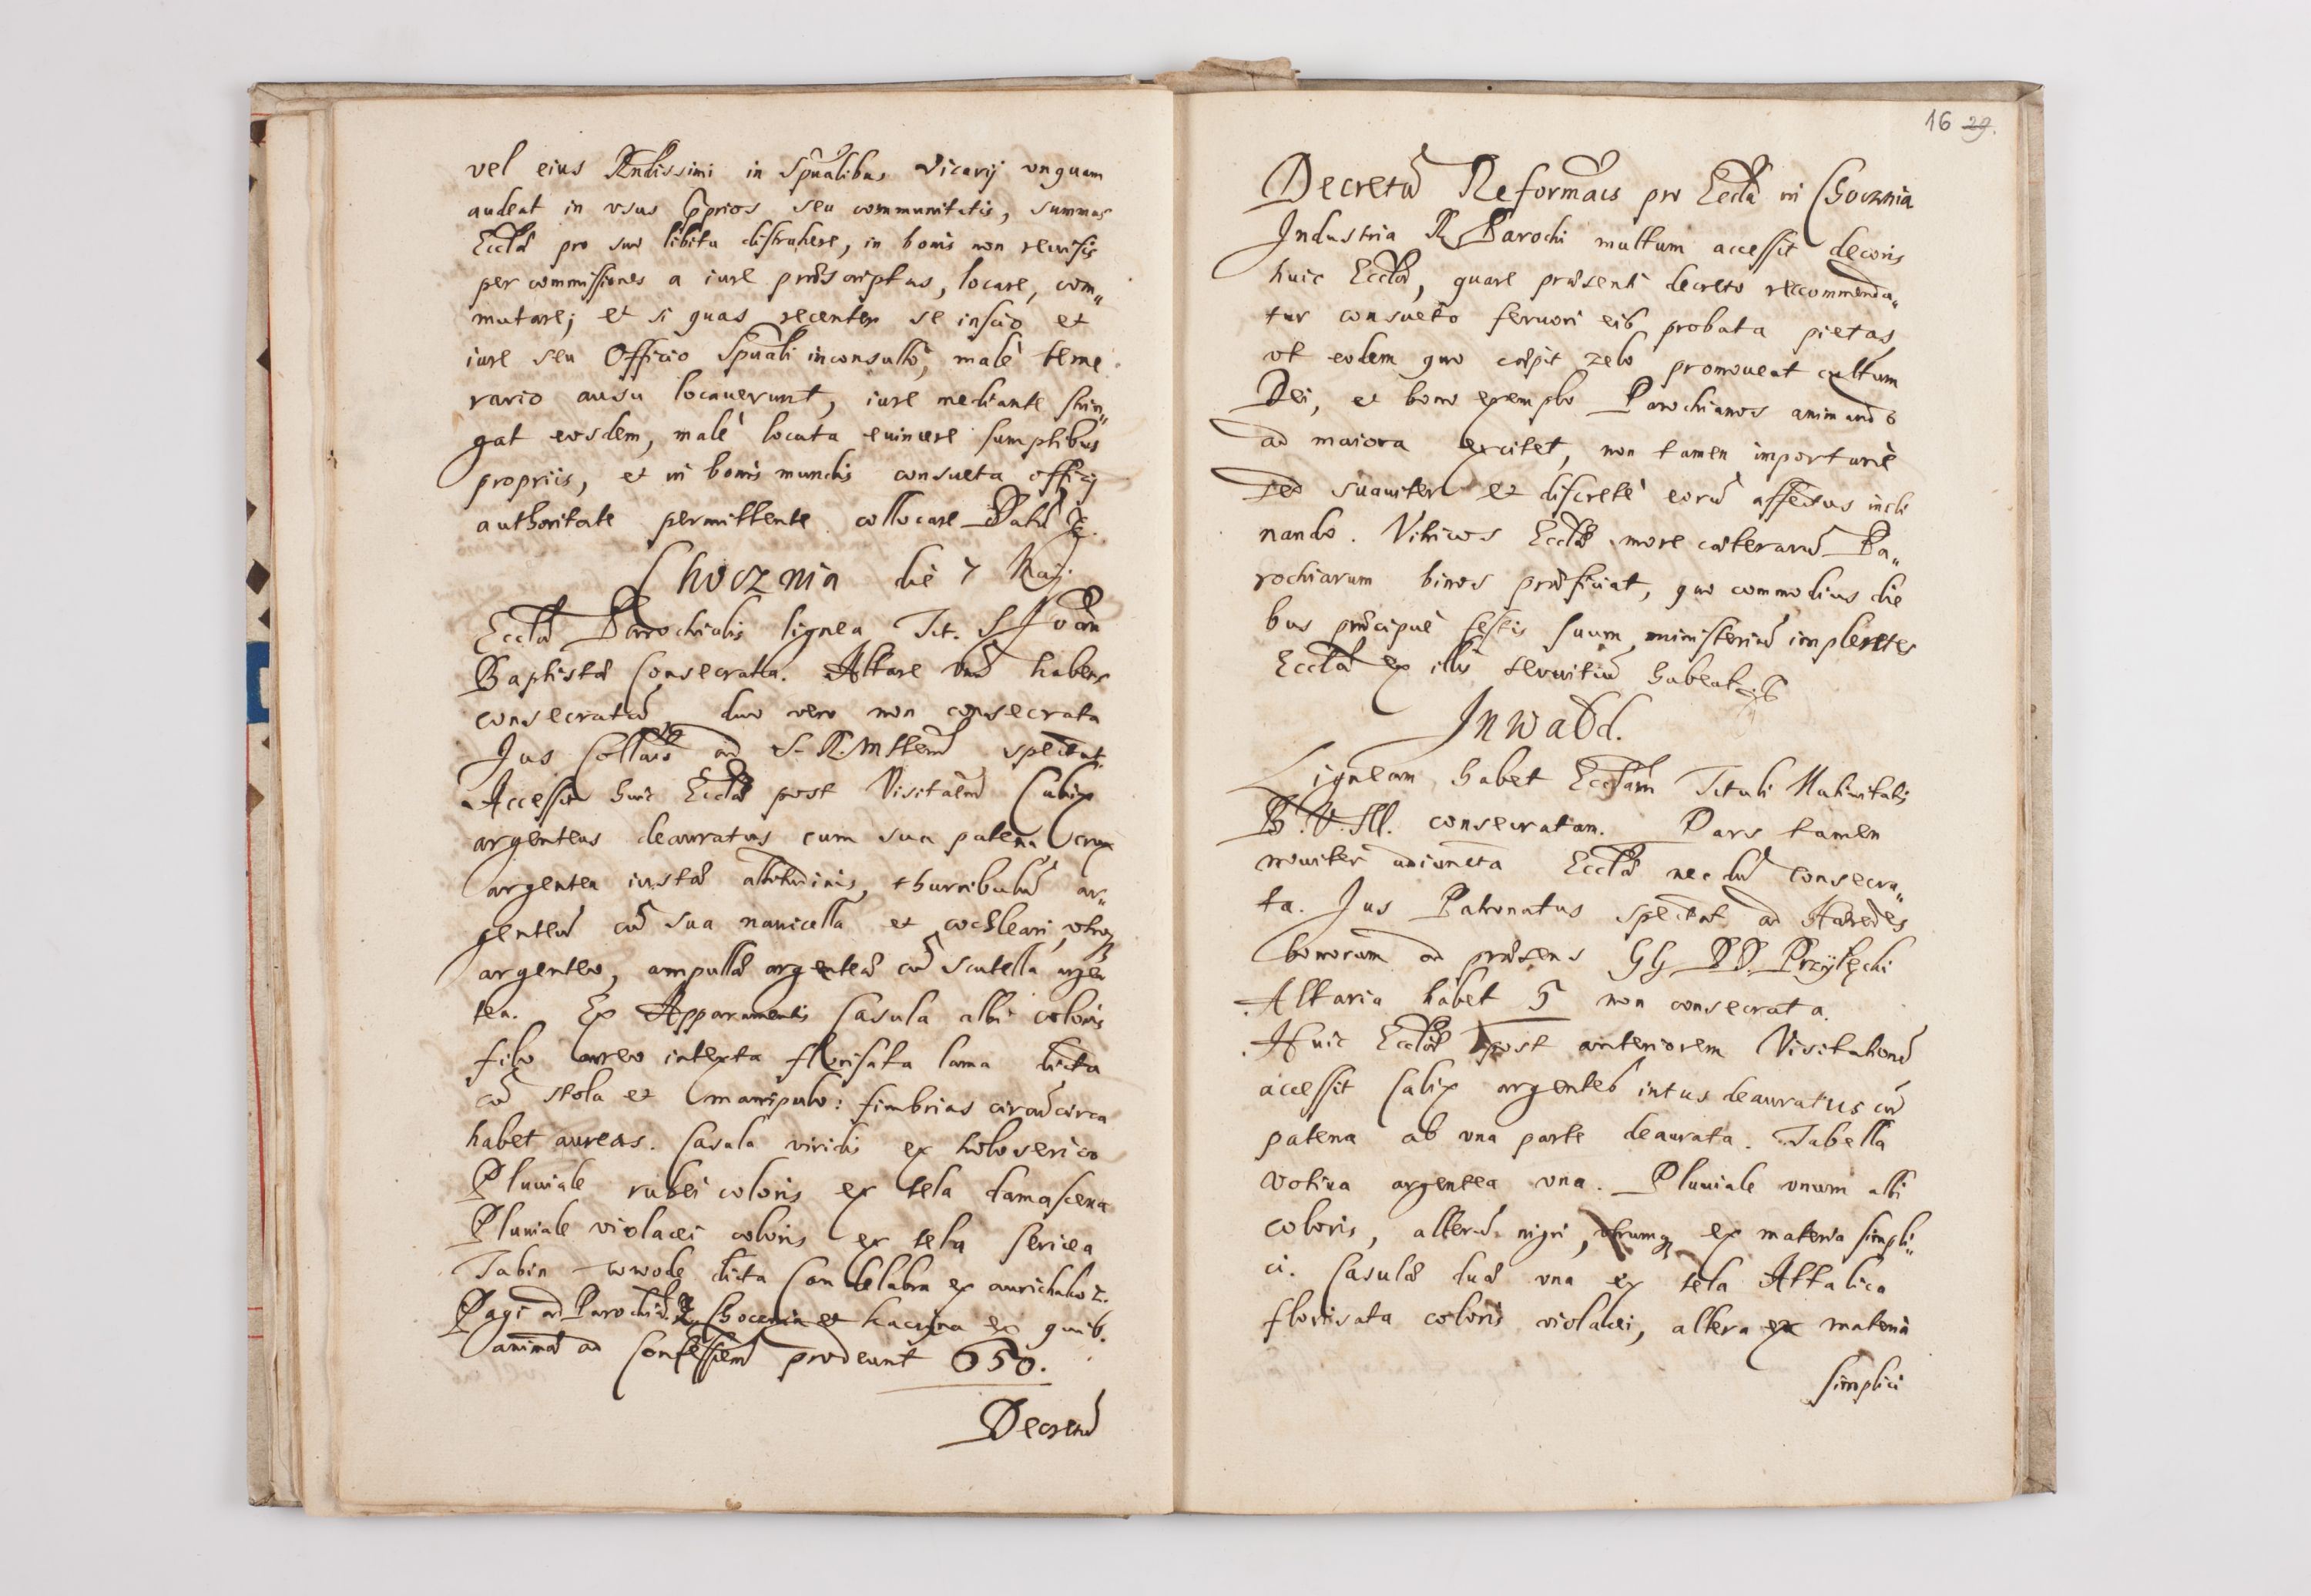 vel eius Rndissimi in Spũalibus Vicarij vnquam
audeat in vsus pprios seu communitatis, summas
Ecclæ pro suo libitu distrahere, in bonis non reuisis
per commissiones a iure præscriptas, locare, com„
mutare; et si quas recenter se inscio et
iure seu Officio Spũali inconsultò, malè teme
rario ausu locauerunt, iure mediante strin„
gat eosdem, malè locata euincere sumptibus
propriis, et in bonis mundis consueta officij
authoritate permittente collocare Datũ
Chocznia die 7 Maij.
Eccla Parochialis lignea Tit. S Joan
Baptistæ Consecrata. Altare vnũ habens
consecratũ, duo vero non consecrata
Jus Collaõis ad S. R. Mttem spectat.
Accessit huic Ecclæ post Visitaõem Calix
argenteus deauratus cum sua patena Crux
argentea iustæ altitudinis, thurribulũ ar„
genteũ cũ sua nauicella et cochleari, vtroq
argenteo, ampullæ argenteæ cũ scutella argen
tea. Ex Apparamentis Casula albi coloris
filo aureo intexta florisata lama dicta
cũ stola et manipulo: fimbrias circũcirca
habet aureas. Casula viridis ex holoserico
Pluuiale rubei coloris ex tela damascena
Pluuiale violacei coloris ex tela sericea
Tabin wwode dicta Candelabra ex aurichalco 2.
Pagi ad Parochiã 2 Chocznia et Kaczyna ex quib.
animæ ad Confessiõem prodeunt 650.
Decretũ
16 29.
Decretũ Reformaõis pro Eccla in Chocznia
Industria R Parochi multum accessit decoris
huic Ecclæ, quare præsenti decreto reccommenda„
tur consueto feruori eiꝰ probata pietas,
vt eodem quo cæpit zelo promoueat cultum
Dei, et bono exemplo Parochianos animandꝰ
ad maiora excitet, non tamen importunè
sed suauiter et discretè eorũ affectus incli
nando. Vitricos Ecclæ more cæterarũ Pa„
rochiarum binos præficiat, quo commodius die
bus præcipuè festis suum ministeriũ implentes
Eccla ex illis seruitiũ habeat
Inwald.
Ligneam habet Ecclam Tituli Natiuitatis
B. V. M. consecratam. Pars tamen
nouiter adiuncta Ecclæ nec dũ consecra„
ta. Jus Patronatus spectat ad Hæredes
bonorum ad præsens GG DD. Przyłęcki
Altaria habet 5 non consecrata.
Huic Ecclæ post anteriorem Visitationẽ
accessit Calix argenteꝰ intus deauratus cũ
patena ab vna parte deaurata. Tabella
votiua argentea vna. Pluuiale vnum albi
coloris, alterũ nigri, vtrumq ex materia simpli„
ci. Casulæ duæ vna ex tela Attalica
florisata coloris violacei, altera ex materia
simplici